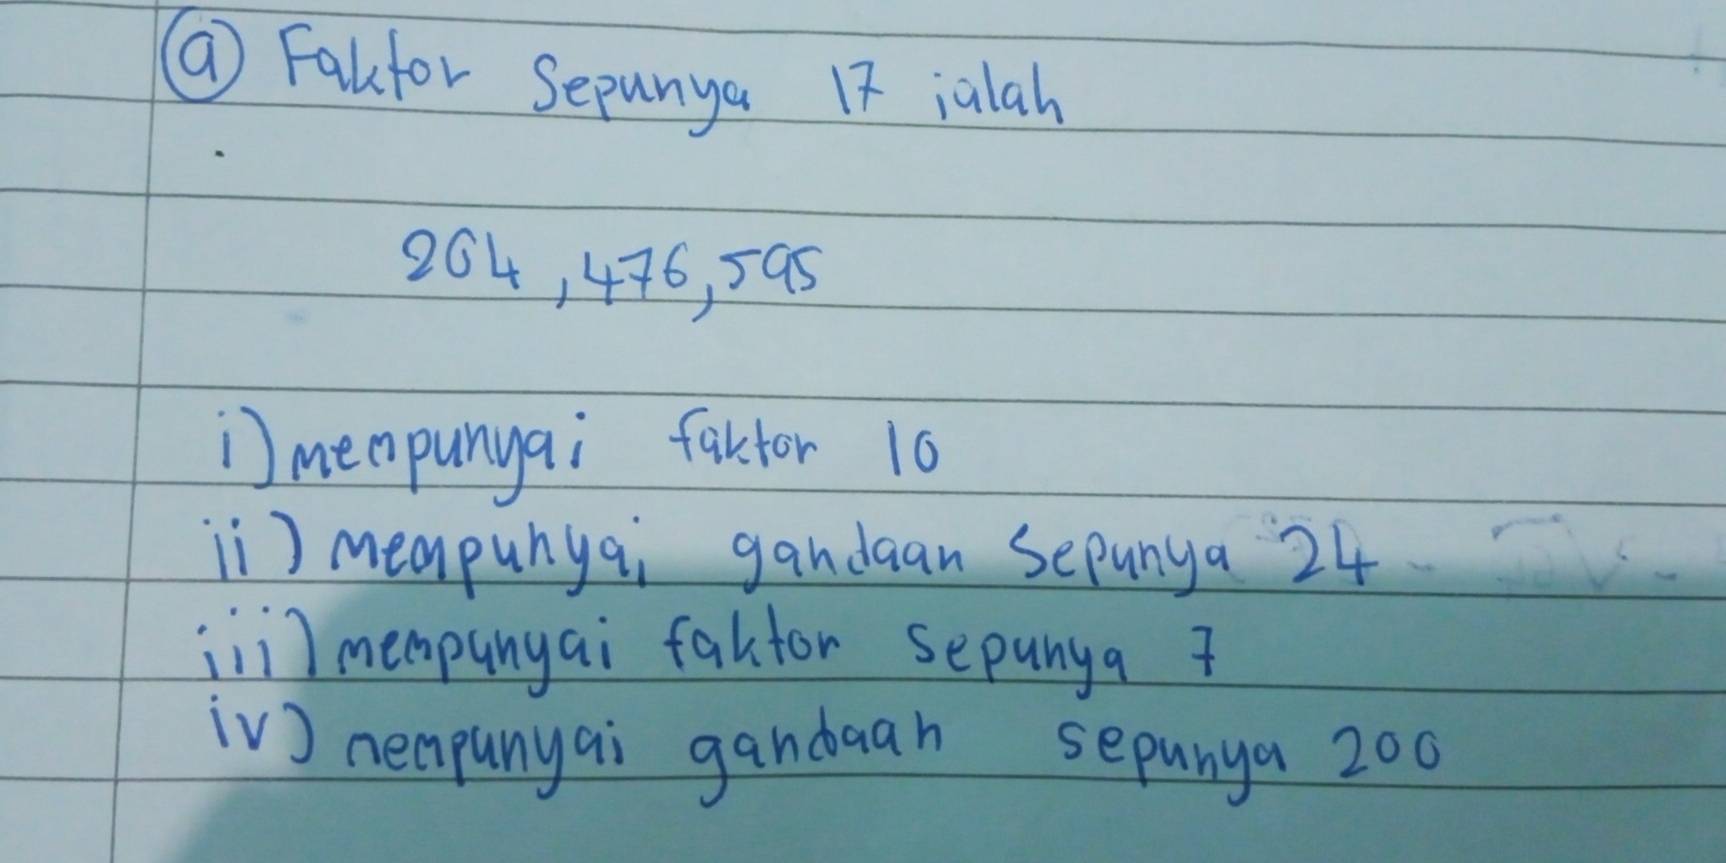 a Faktor Sepunya 17 ialah
204, 476, 595
i) mempunyai faktor 10
ii) mempunyai gandaan Sepunya 24
iii) mempunyai faktor sepunya 7
iv) mempunyai gandaan sepunya 200